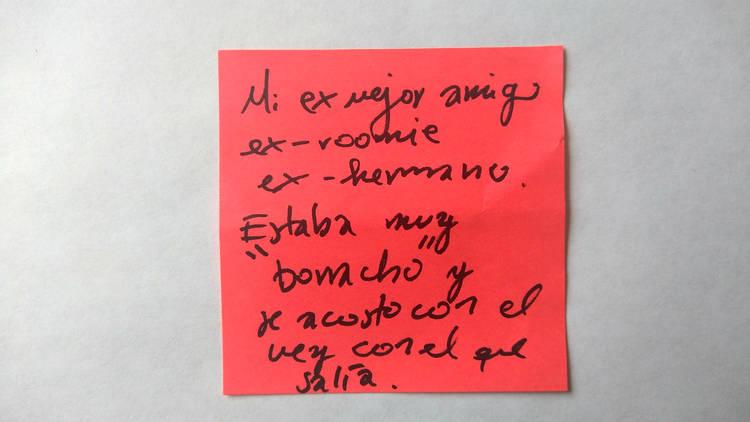 Mi ex mejor amigo
ex-roomie
ex-hermano.
Estaba muy
"borracho" y
se acosto con el
wey con el que
salía.